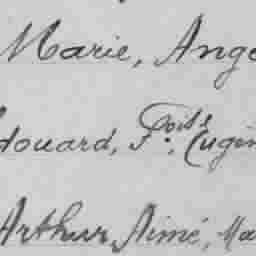 Marie, Ange
douard, F.ois, Eugèn
Arthur, Aimé, Ma